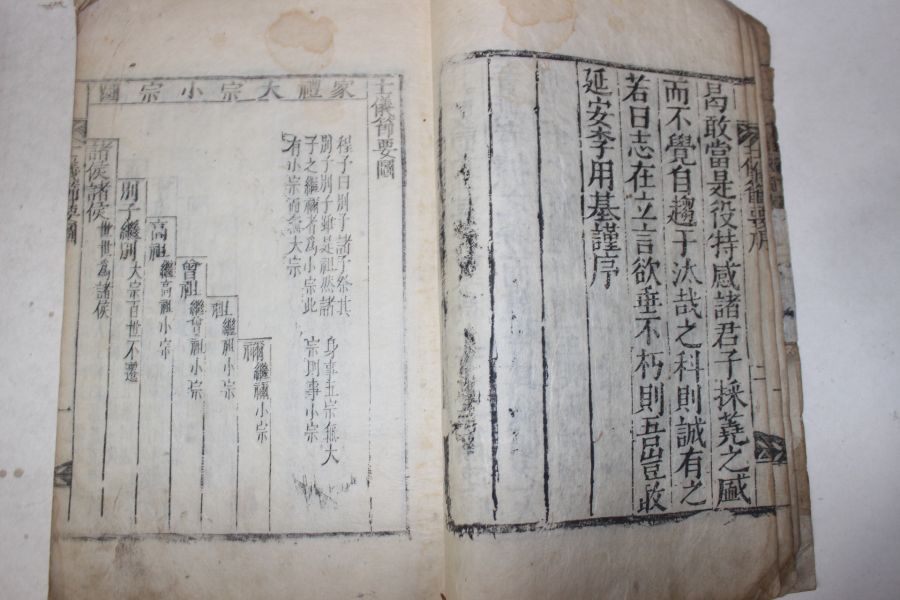 曷敢當是役特感諸君子採蕘之盛
而不覺自趨于汰哉之科則誠有之
若曰志在立言欲垂不朽則吾豈敢
延安李用基謹序
士儀節要圖
家禮大宗小宗圖
程子曰別子諸子祭其
別子別子雖是祖然諸
子之繼禰者爲小宗此
有小宗而無大宗
身事五宗無大
宗則事小宗
禰繼禰小宗
祖繼祖小宗
曾祖繼曾祖小宗
高祖繼高祖小宗
別子繼別大宗百世不遷
諸侯諸侯世世爲諸侯